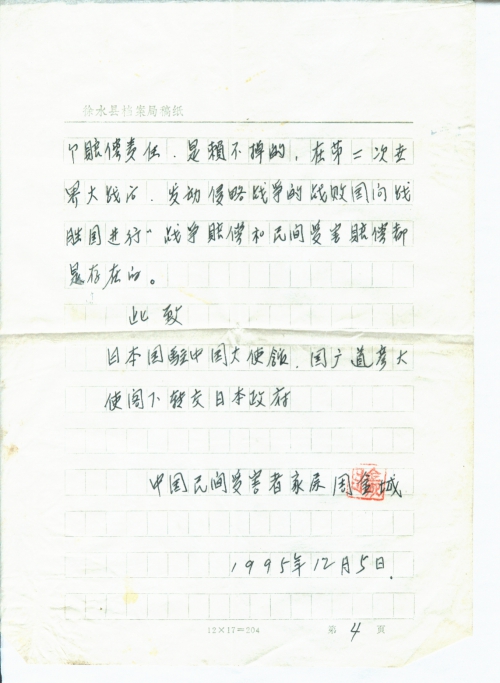 徐水县档案局稿纸
个赔偿责任．是賴不掉的，在第二次世
界大战后．发动侵略战争的战败国向战
胜国进行"战争赔偿和民间受害赔偿都
是存在的。
此致
日本国駐中国大使館．国广道彦大
使阁下转交日本政府
中国民间受害者家属周金城
1995年12月5日．
12×17=204
第4頁